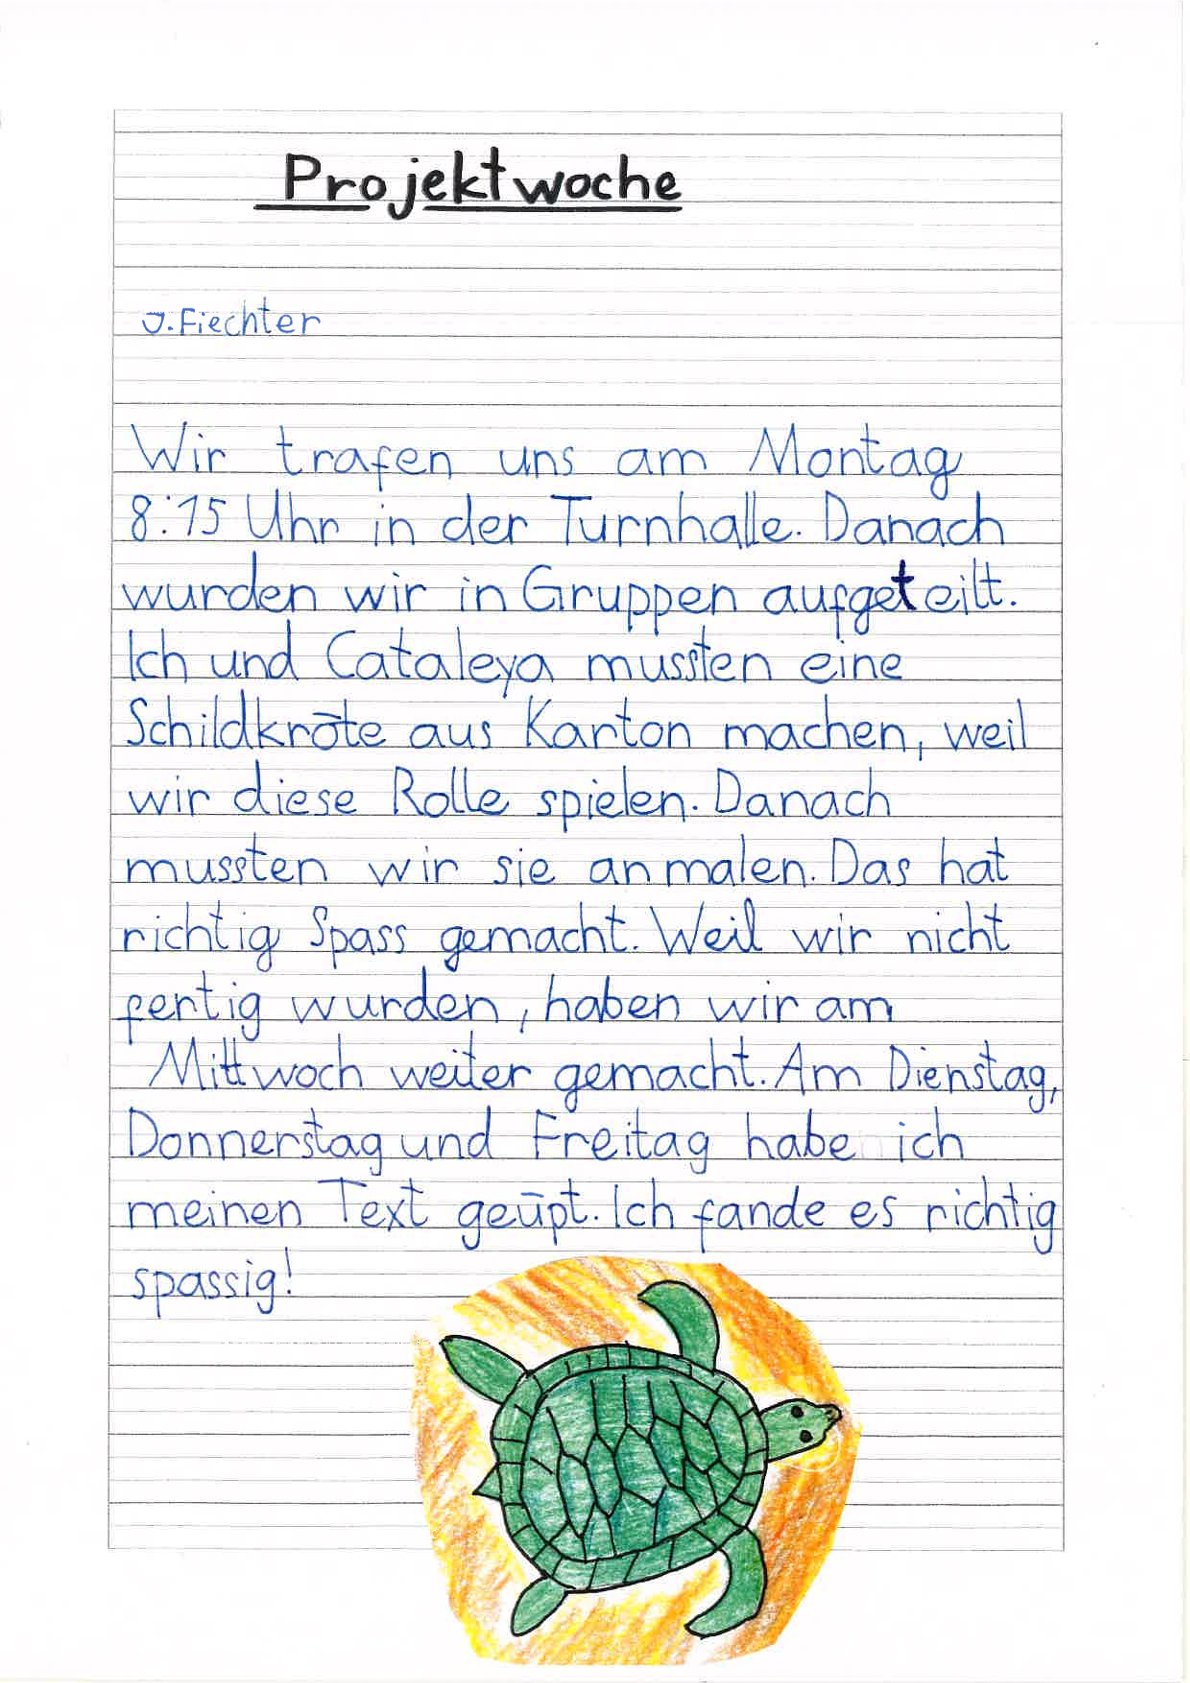 Projektwoche
J. Fiechter
Wir trafen uns am Montag
8:15 Uhr in der Turnhalle. Danach
wurden wir in Gruppen aufgeteilt.
Ich und Cataleya mussten eine
Schildkröte aus Karton machen, weil
wir diese Rolle spielen. Danach
mussten wir sie anmalen. Das hat
richtig Spass gemacht. Weil wir nicht
fertig wurden, haben wir am
Mittwoch weiter gemacht. Am Dienstag,
Donnerstag und Freitag habe ich
meinen Text geüpt. Ich fande es richtig
spassig!